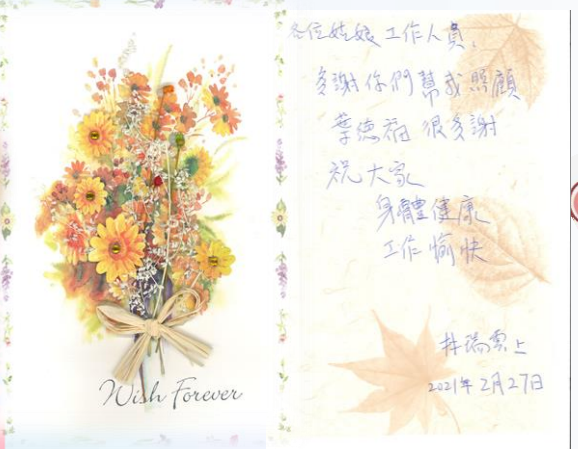 Wish Forever
各位姑娘工作人員,
多謝你們幫我照顧
葉德福 很多謝
祝大家
身體健康
工作愉快
瑞雲上
2021年2月27日